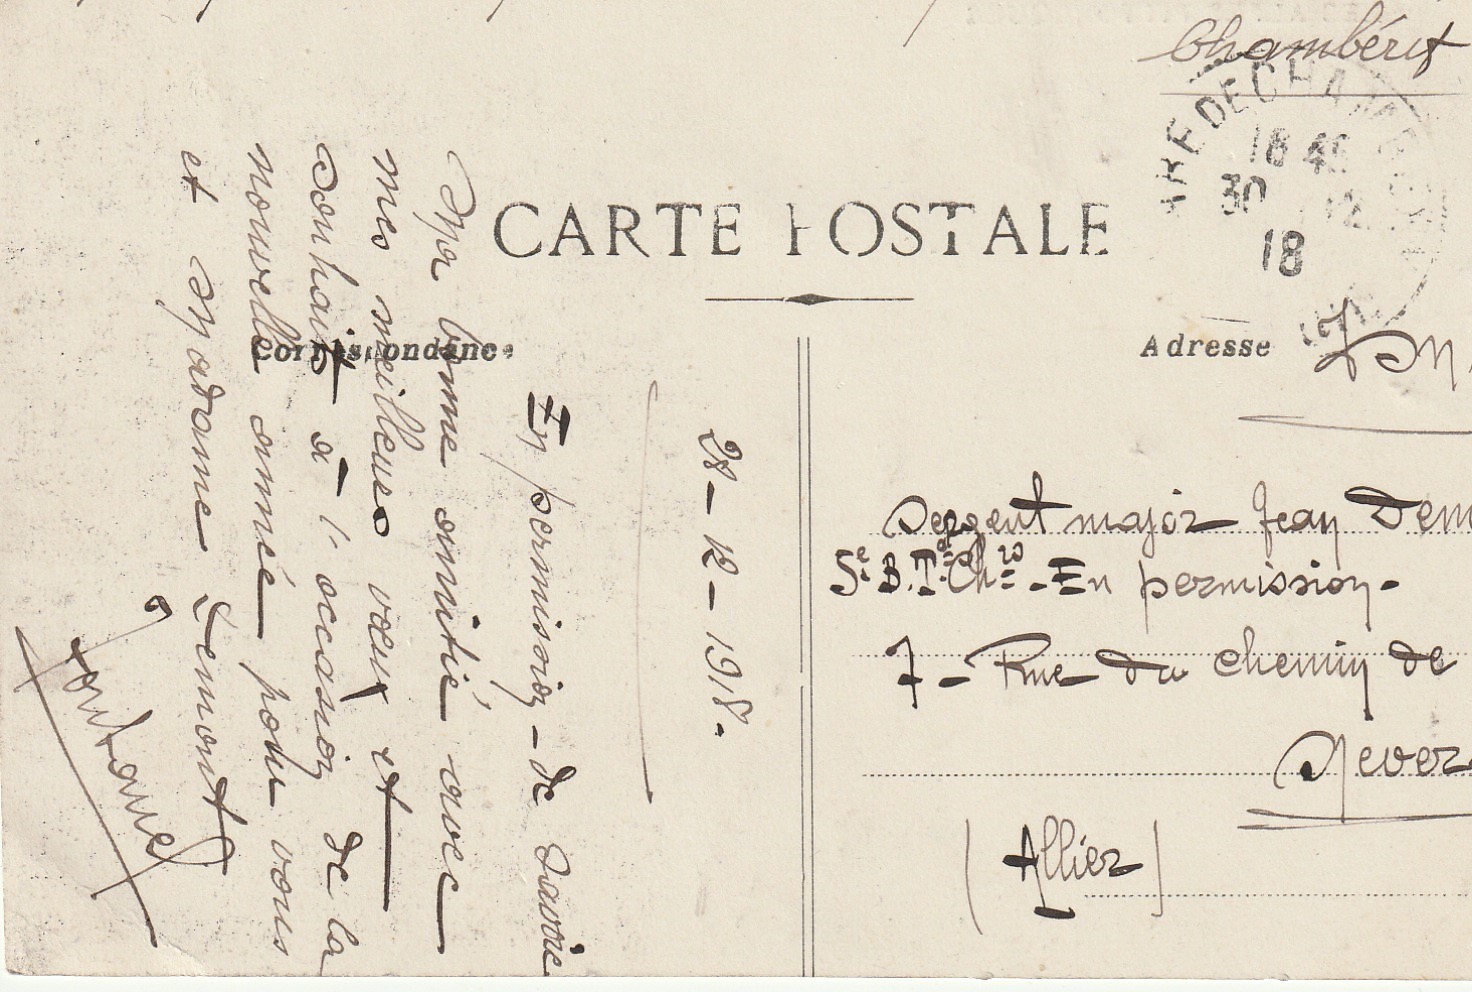 Chambéry
CARTE POSTALE
GARE DE CHAMBERY
18 45
30 12
18
Correspondance
Adresse
28-12-1918.
En permission - de Savoie
Ma bonne amitié avec
mes meilleurs vœux et
souhaits à l'occasion de la
nouvelle année pour vous
et Madame Demont
Sergent major Jean Dem
5e B.T. Chrs - En permission -
7 - Rue du chemin de
Never
(Allier)